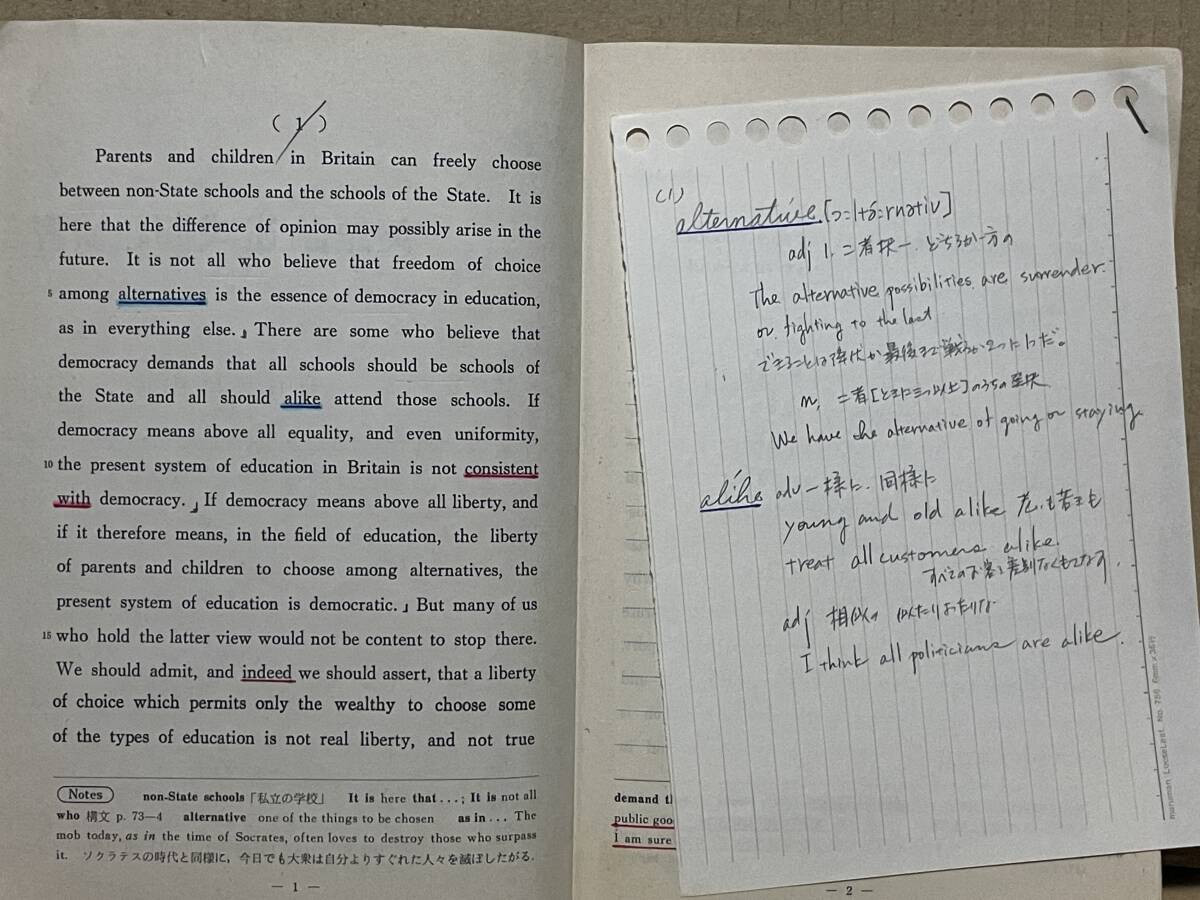 ( 1 )
Parents and children in Britain can freely choose
between non-State schools and the schools of the State. It is
here that the difference of opinion may possibly arise in the
future. It is not all who believe that freedom of choice
5 among alternatives is the essence of democracy in education,
as in everything else.」 There are some who believe that
democracy demands that all schools should be schools of
the State and all should alike attend those schools. If
democracy means above all equality, and even uniformity,
10 the present system of education in Britain is not consistent
with democracy.」 If democracy means above all liberty, and
if it therefore means, in the field of education, the liberty
of parents and children to choose among alternatives, the
present system of education is democratic.」 But many of us
15 who hold the latter view would not be content to stop there.
We should admit, and indeed we should assert, that a liberty
of choice which permits only the wealthy to choose some
of the types of education is not real liberty, and not true
Notes non-State schools「私立の学校」 It is here that...; It is not all
who 構文 p. 73—4 alternative one of the things to be chosen as in... The
mob today, as in the time of Socrates, often loves to destroy those who surpass
it. ソクラテスの時代と同様に，今日でも大衆は自分よりすぐれた人々を滅ぼしたがる.
— 1 —
(1)
alternative [ɔ:ltə́:rnətiv]
adj 1. 二者択一. どちらか一方の
The alternative possibilities are surrender
or fighting to the last
できることは降伏か最後まで戦うか2つに1つだ。
n, 二者[ときに三つ以上]のうちの選択
We have the alternative of going or staying.
alike adv 一様に. 同様に
young and old alike 老いも若きも
treat all customers alike.
すべてのお客を差別なくもてなす.
adj 相似の 似たりよったりな
I think all politicians are alike.
maruman LooseLeaf No. 756 6mm×36行
demand t
public goo
i am sure
— 2 —